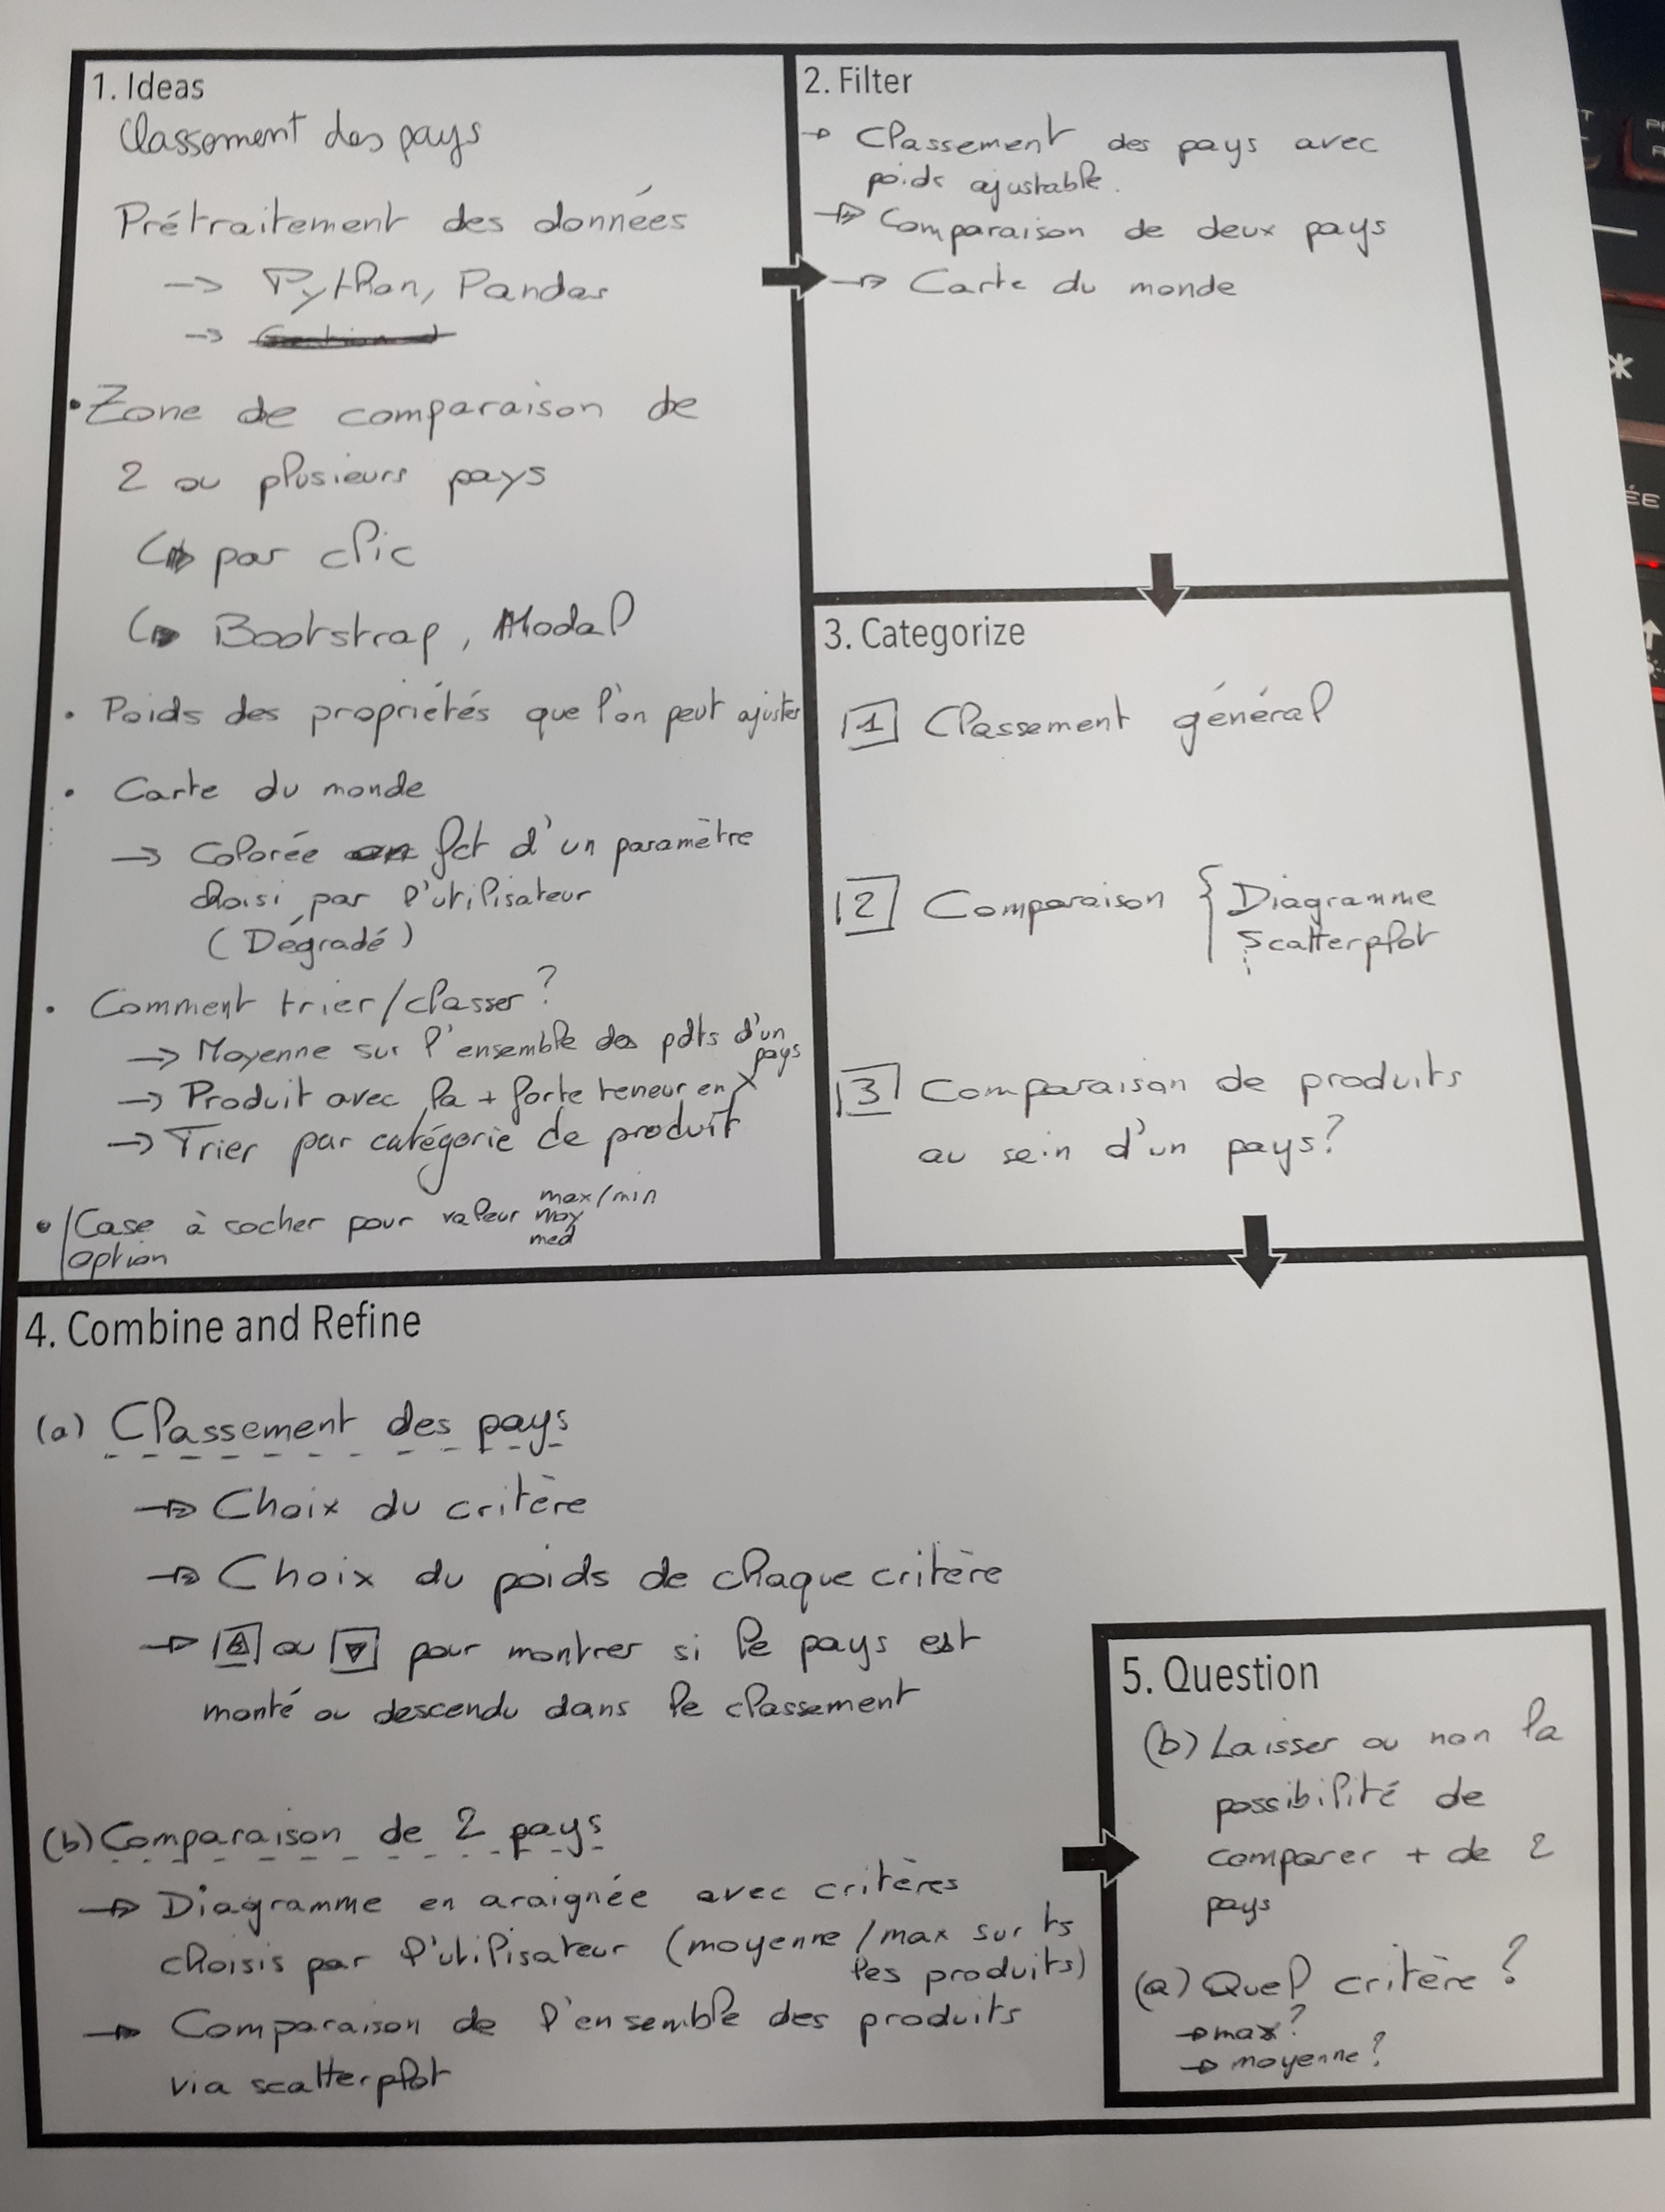 1. Ideas
Classement des pays
Prétraitement des données
-> Python, Pandas
->
• Zone de comparaison de
2 ou plusieurs pays
↳ par clic
↳ Bootstrap, Modal
• Poids des propriétés que l'on peut ajuster
• Carte du monde
-> Colorée en fct d'un paramètre
choisi par l'utilisateur
(Dégradé)
• Comment trier/classer ?
-> Moyenne sur l'ensemble des pdts d'un
pays
-> Produit avec la + forte teneur en X
-> Trier par catégorie de produit
• Case à cocher pour valeur max/min
moy
med
option
2. Filter
-> Classement des pays avec
poids ajustable.
-> Comparaison de deux pays
-> Carte du monde
3. Categorize
1 Classement général
2 Comparaison { Diagramme
Scatterplot
3 Comparaison de produits
au sein d'un pays?
4. Combine and Refine
(a) Classement des pays
-> Choix du critère
-> Choix du poids de chaque critère
-> ▲ ou ▼ pour montrer si le pays est
monté ou descendu dans le classement
(b) Comparaison de 2 pays
-> Diagramme en araignée avec critères
choisis par l'utilisateur (moyenne/max sur ts
les produits)
-> Comparaison de l'ensemble des produits
via scatterplot
5. Question
(b) Laisser ou non la
possibilité de
comparer + de 2
pays
(a) Quel critère ?
-> max?
-> moyenne?
*
ÉE